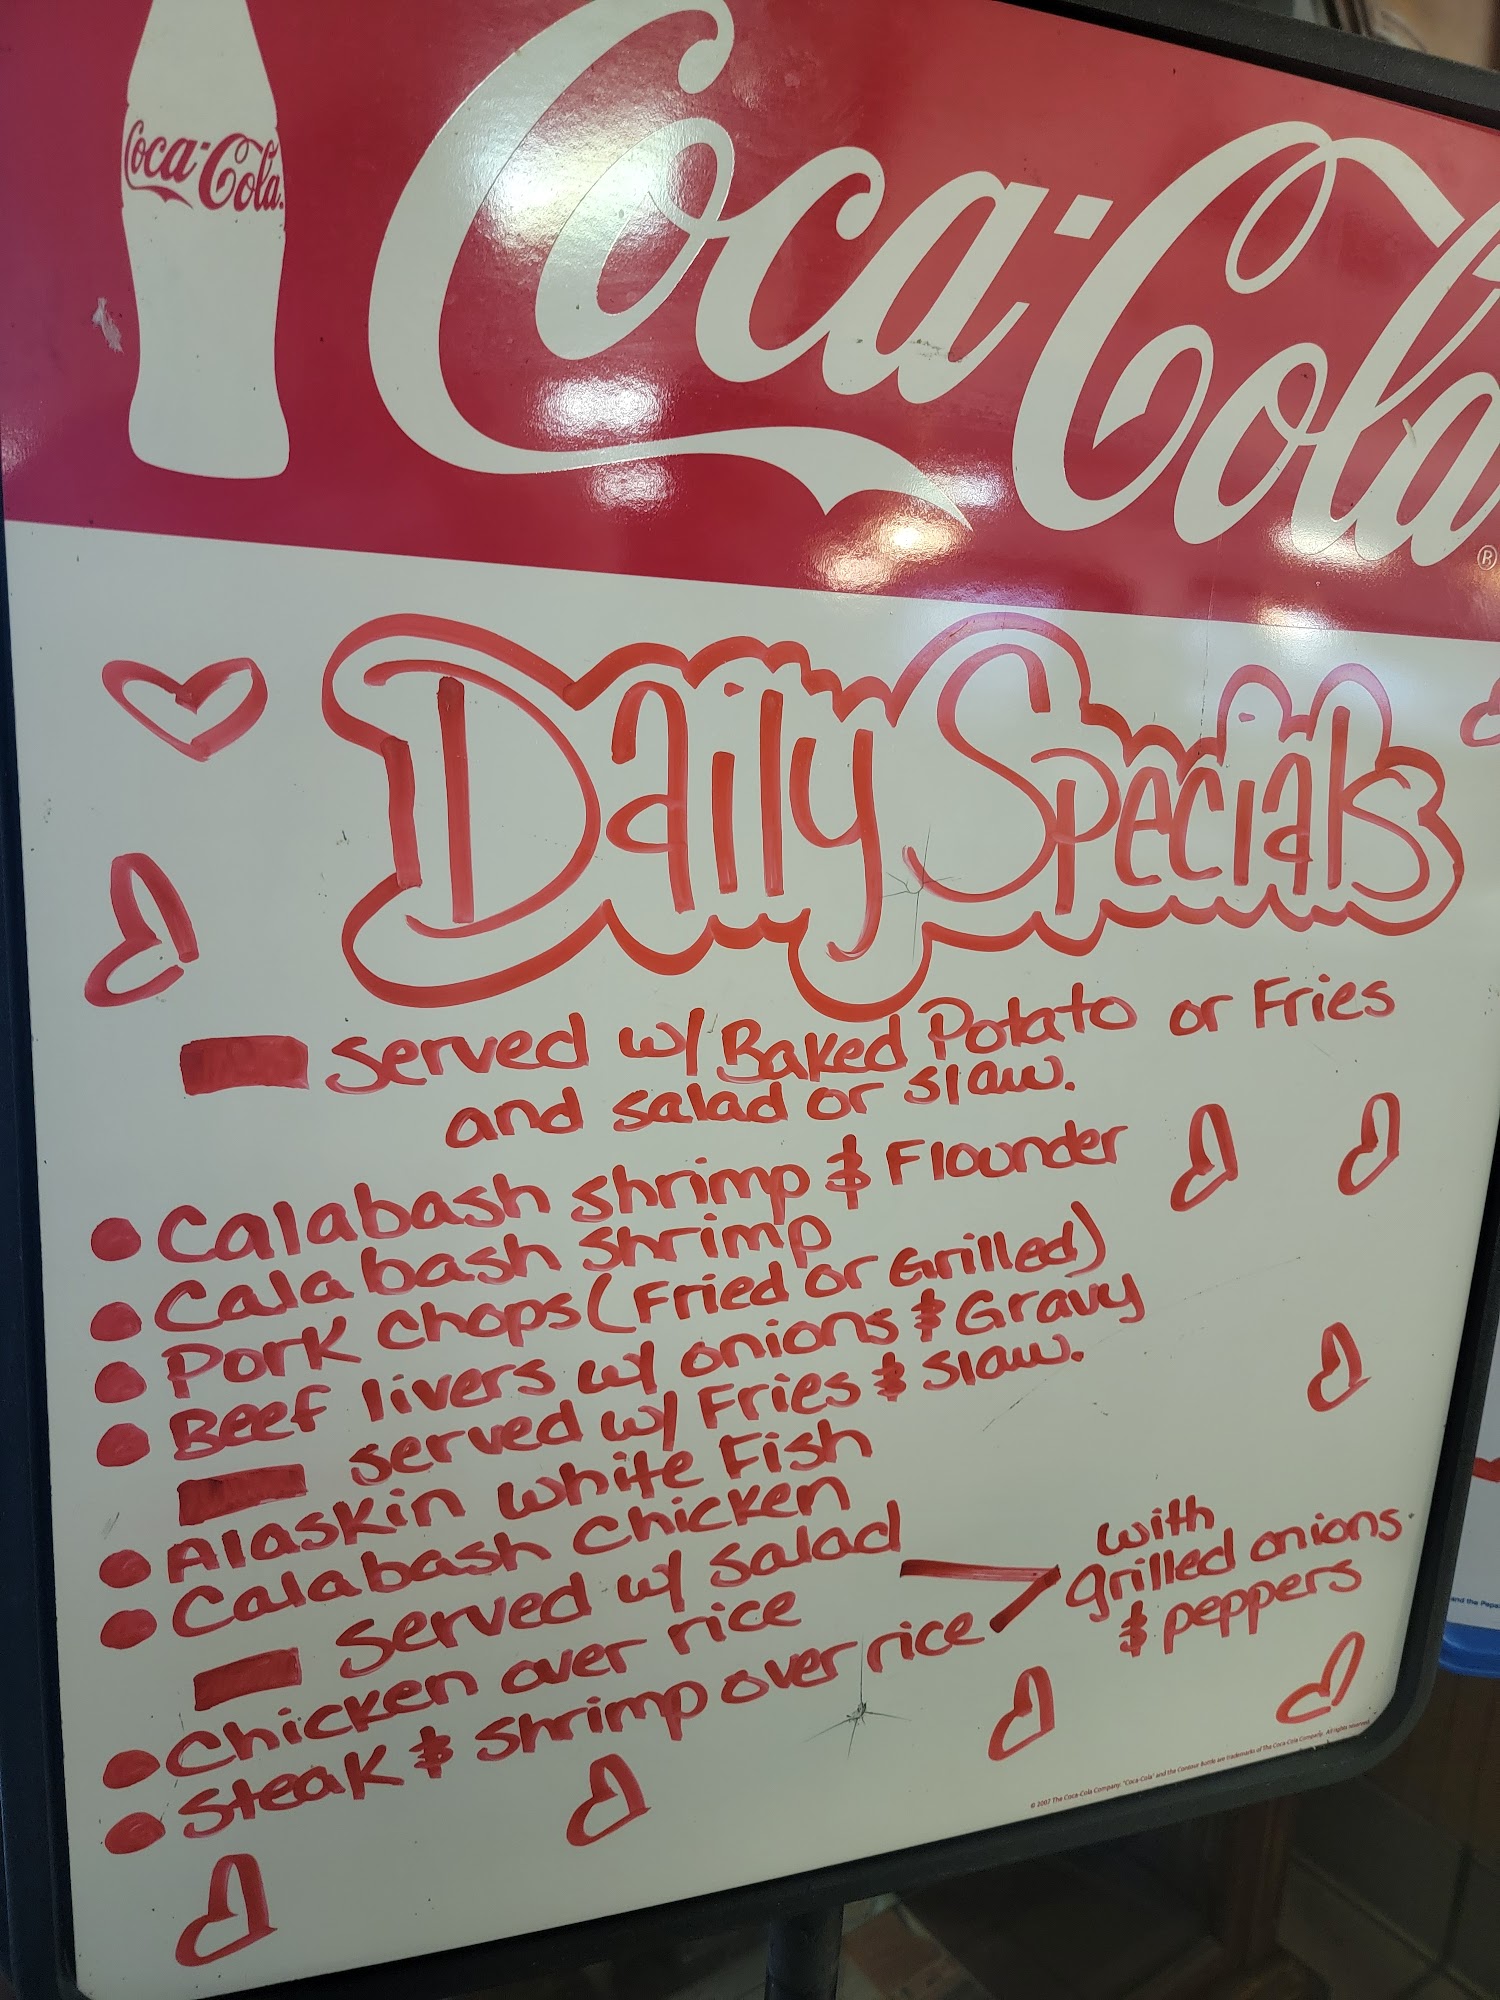 Coca-Cola
Coca-Cola ®
Daily Specials
Served w/ Baked Potato or Fries
and salad or slaw.
Calabash shrimp & Flounder
Calabash shrimp
Pork chops (Fried or Grilled)
Beef livers w/ onions & Gravy
served w/ Fries & slaw.
Alaskin white Fish
Calabash chicken
served w/ salad
Chicken over rice
Steak & shrimp over rice
with
grilled onions
& peppers
© 2007 The Coca-Cola Company. "Coca-Cola" and the Contour Bottle are trademarks of The Coca-Cola Company. All rights reserved.
and the Peps